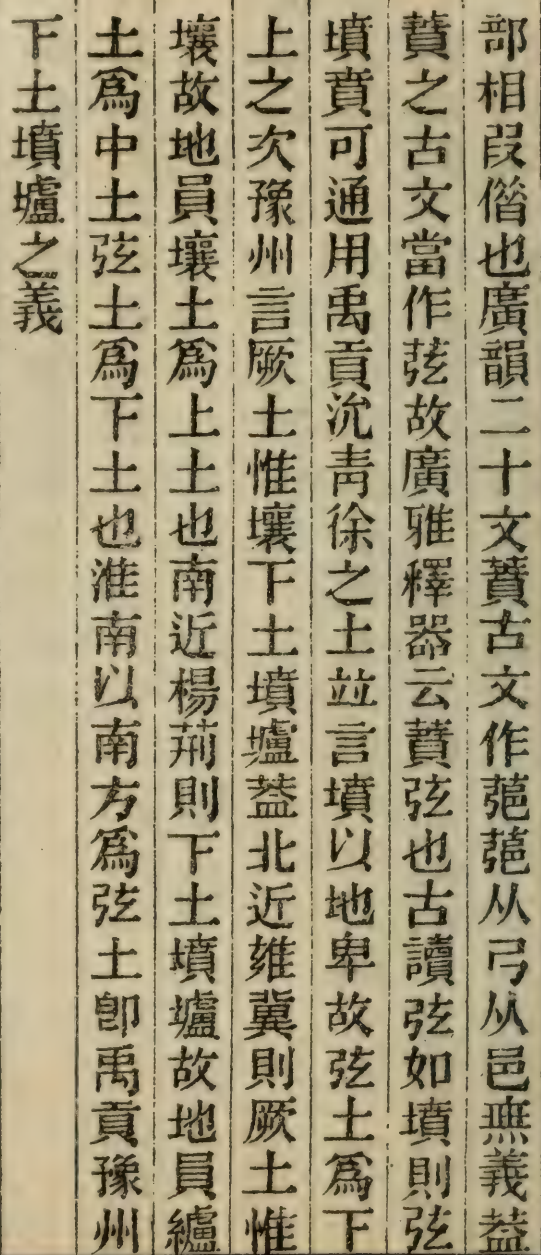 部相叚偕也廣韻二十文蕡古文作𦹴𦹴从弓从邑無義葢
蕡之古文當作弦故廣雅釋器云蕡弦也古讀弦如墳則弦
墳賁可通用禹貢沇靑徐之土竝言墳以地卑故弦土爲下
上之次豫州言厥土惟壤下土墳壚葢北近雍冀則厥土惟
壤故地員壤土爲上土也南近楊荊則下土墳壚故地員纑
土爲中土弦土爲下土也淮南以南方爲弦土卽禹貢豫州
下土墳壚之義